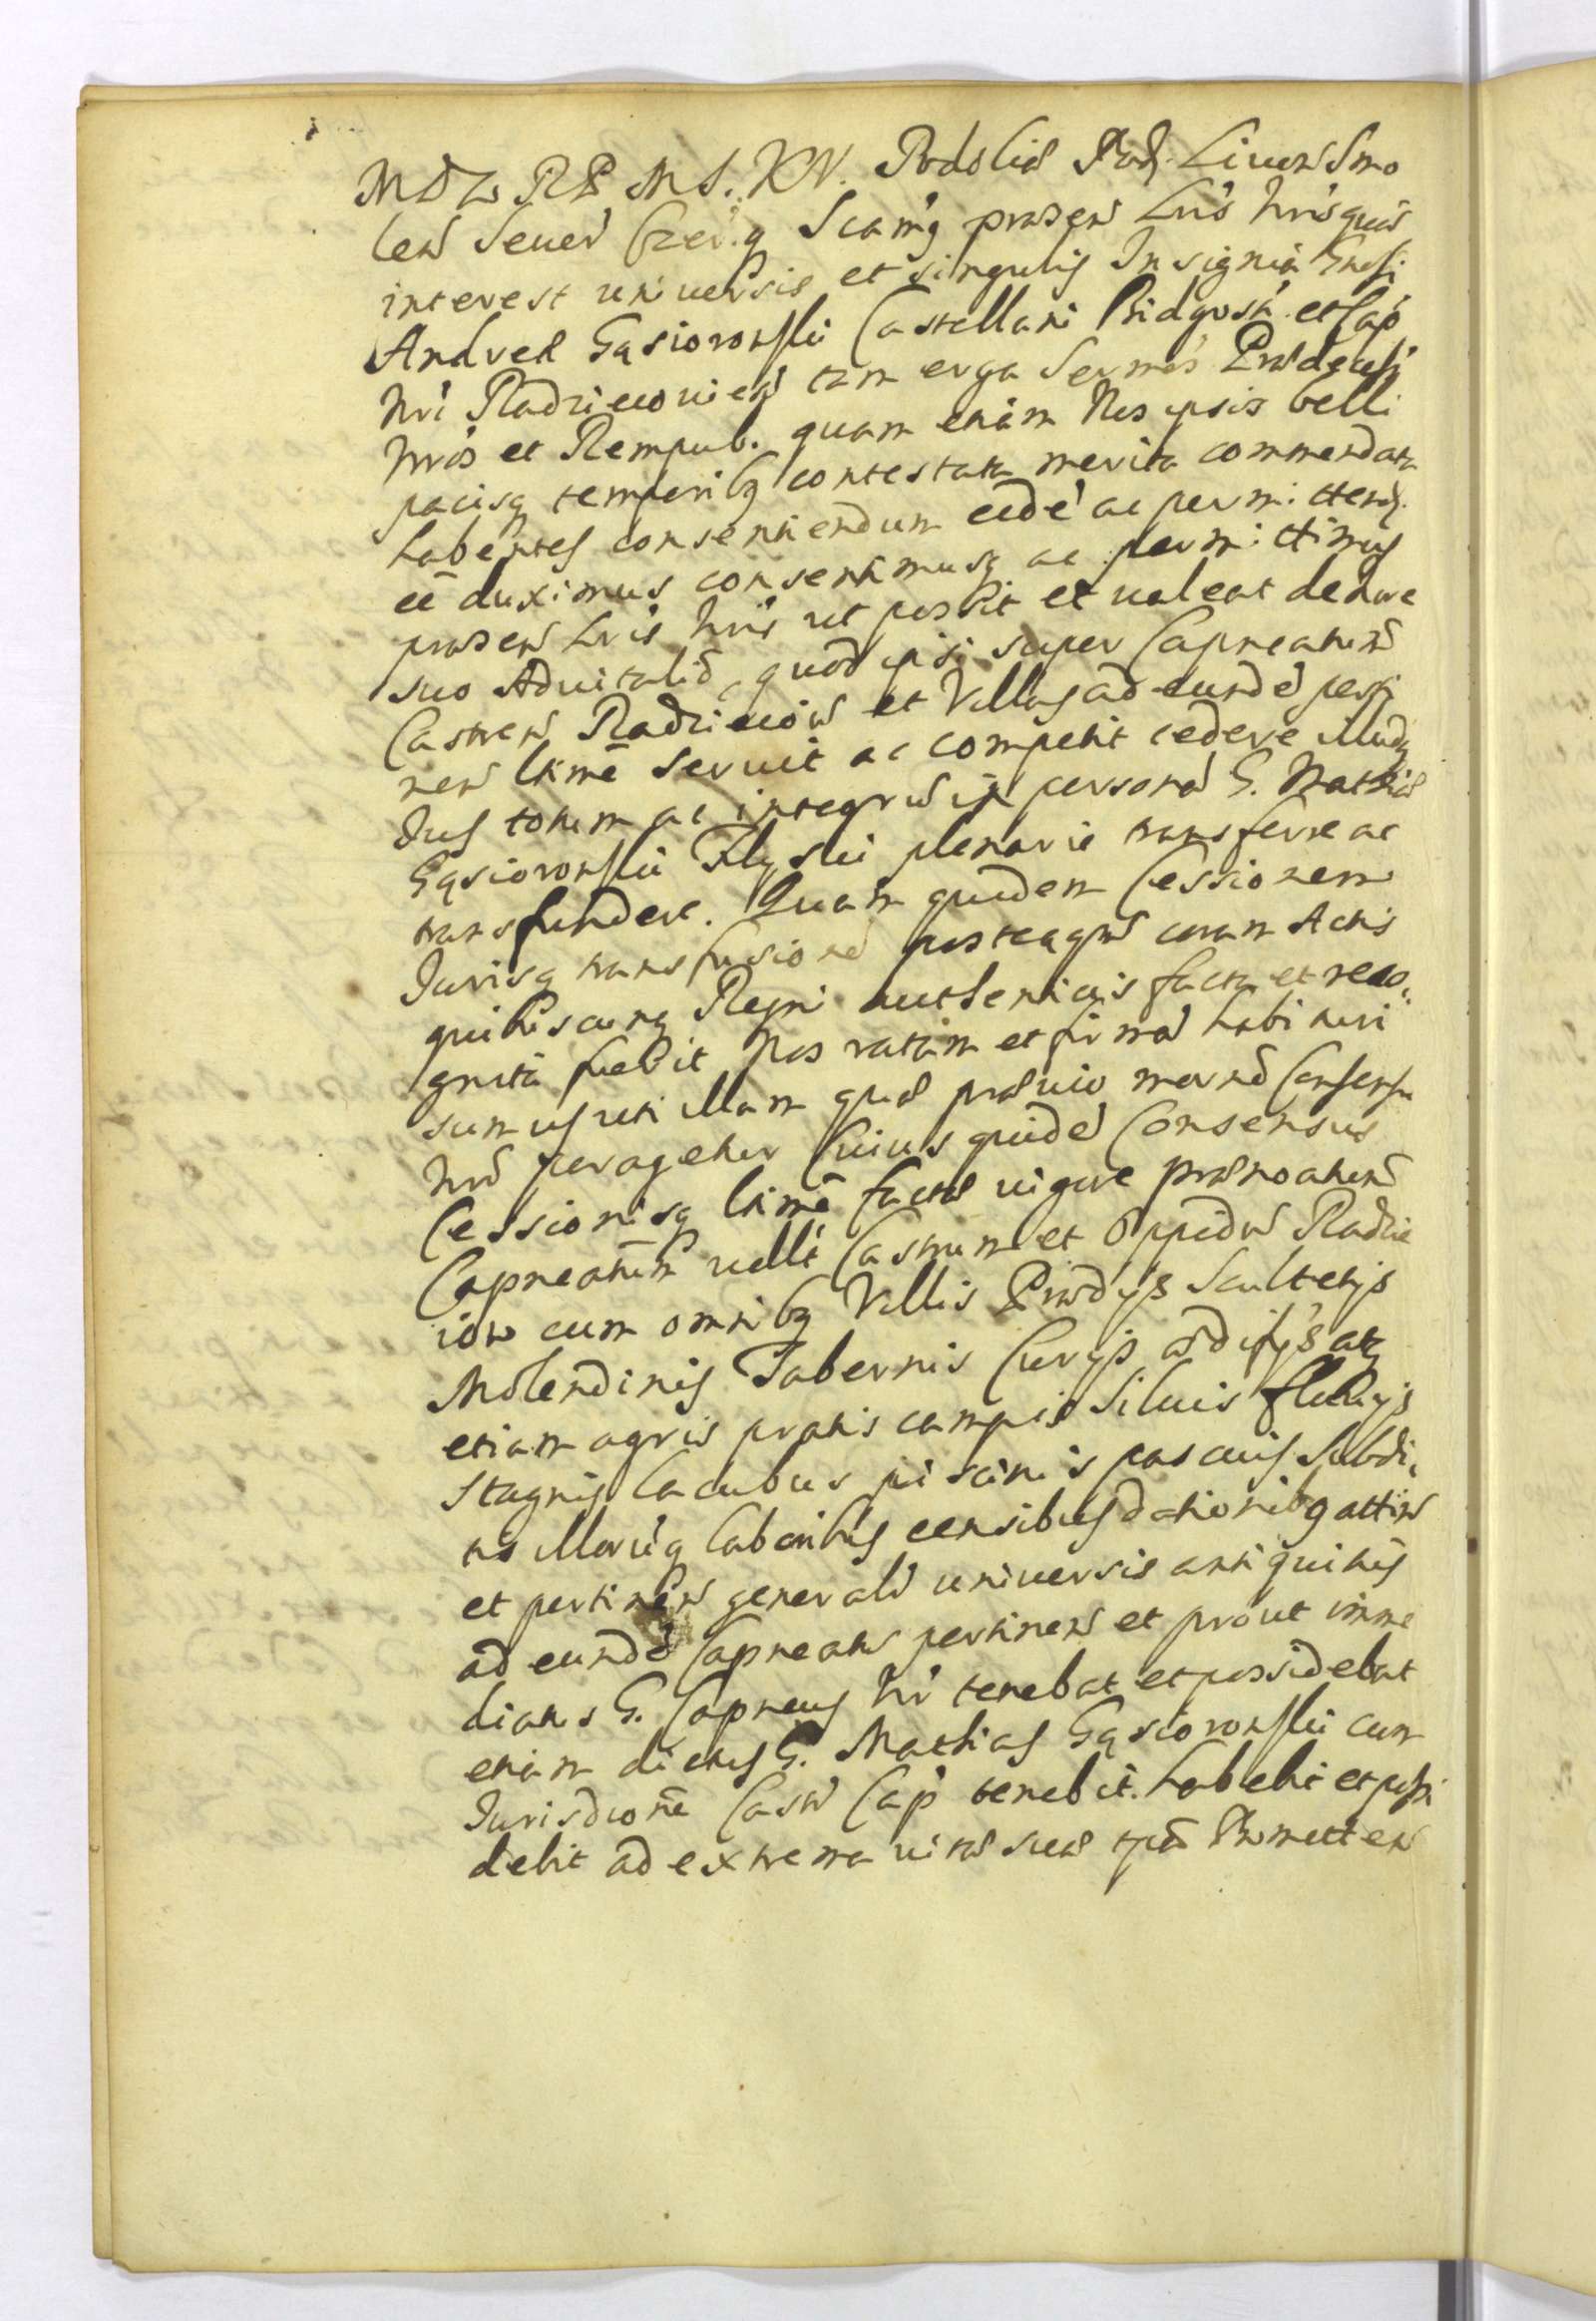 MDL RP MS. KV. Podoliæ Pod. Livon Smo
len Sever Czer.q Scamq præsen Lris nris quis
interest universis et singulis Insignia Gnosi
Andreæ Gąsiorowski Castellani Bidgosn. et Cap
Nri Radzieiovien tam erga Sermos Prædecess
nros et Rempub. quam etiam Nos ipsis belli
pacisq temporibq contestata merita commendata
habentes consentiendum eidē ac permittend.
eē duximus consentimusq ac permittimus
præsen Lris nris ut possit et valeat de Jure
suo Advitalid, quod ipsi super Capneatum
Castren Radzieiow et Villas ad eundē perti
nen ltimē servit ac competit cedere illudq
Jus totum ac integrū in personā G. Mathiæ
Gąsiorowski Filij sui plenarie transferre ac
transfundere. Quam quidem Cessionem
Jurisq transfusionē posteaqm coram Actis
quibiscunq Regni authenticis facta et reco,
gnita fuerit Nos ratam et firmā habituri
sumus uti illam quæ prævio mernd Consensu
Nro peragetur Cuius quidē Consensus
Cessionisq ltimē factæ vigore prænoatum
Capneatum utlt Castrum et Oppidū Radzie
iow cum omnibq Villis Prædijs Scultetijs
Molendinis Tabernis Curijs ædifijs atq
etiam agris pratis campis Silvis fluvijs
Stagnis lacubus piscinis pascuis Subdi,
tis illorūq laboribus censibus dationibq attin
et pertinen generalr universis antiquitus
ad eundē Capneatū pertinen et prout imme
diatus G. Capneus Nr tenebat et possidebat
etiam dictus G. Mathias Gąsiorowski cum
Jurisdionē Castr Cap tenebit. habebit et possi
debit ad extrema vitæ suæ tpā Promitten